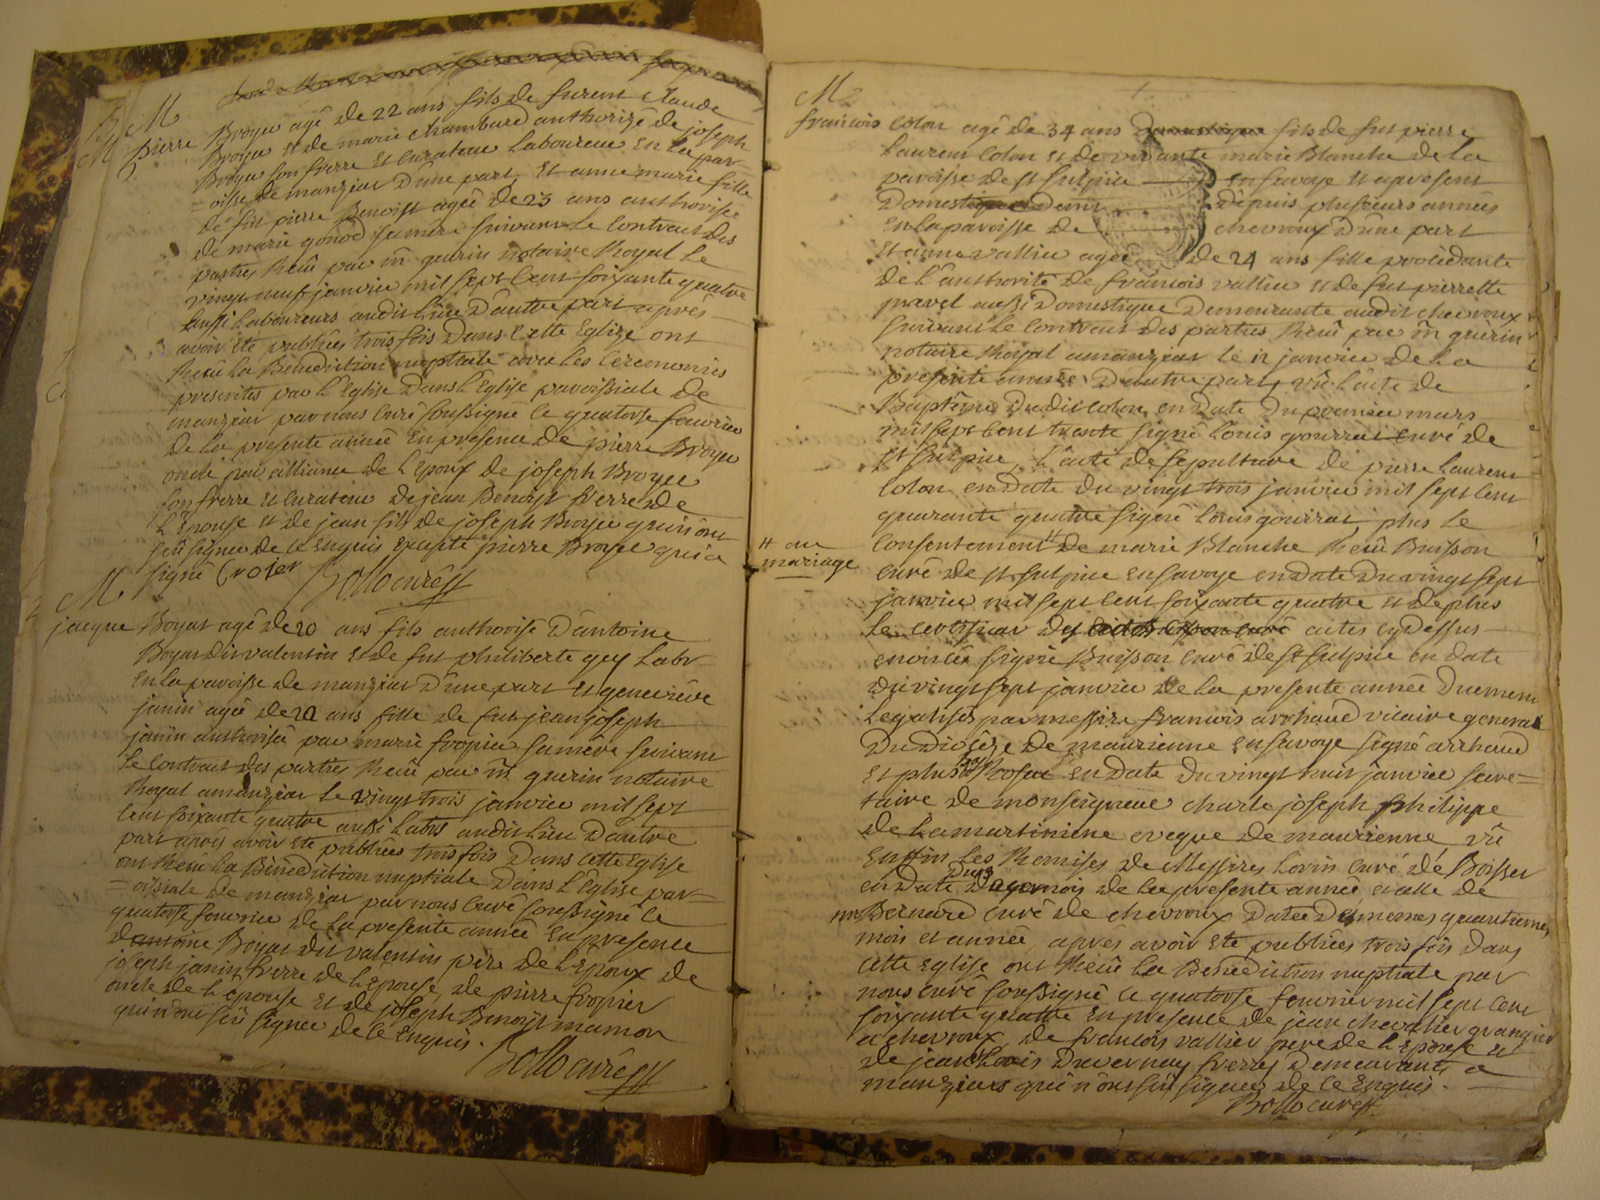 M
pierre Broyer agé de 22 ans fils de furent Claude
Broyer et de marie Chambard authorizé de joseph
Broyer son frere et Curateur Laboureur en la par-
=oisse de manziat d'une part, et anne marie fille
de fut pierre Benoist agée de 23 ans authorisée
de marie gonod sa mere suivant Le Contrat des
parties Receu par m guerin notaire Royal Le
vingt neuf janvier mil sept Cent soixante quatre
aussi Laboureurs audit Lieu d'autre part après
avoir été publiées trois fois dans Cette Eglize ont
Receu la Benediction nuptiale avec les Ceremonies
presentes par L'Eglise dans L'Eglise paroissiale de
manziat par nous Curé soussigné Le quatorse fevrier
de la presente année en presence de pierre Broyer
oncle par alliance de L'epoux de joseph Broyer
son frere et Curateur de jean Benoist frere de
L'Epouse et de jean fils de joseph Broyer qui n'ont
sçu signer de Ce Enquis Excepté pierre Broyer qui a
signé Broier Bollo curé
M
jacque Boyat agé de 20 ans fils authorisé d'antoine
Boyat dit valentin et de fut philiberte gey Labr
en la paroisse de manziat d'une part et genevieve
janin agée de 22 ans fille de fut jean joseph
janin authorisée par marie fropier sa mère suivant
Le Contrat des parties Receu par m guerin notaire
Royal a manziat Le vingt trois janvier mil sept
Cent soixante quatre aussi Labrs audit Lieu d'autre
part après avoir été publiées trois fois dans Cette Eglise
ont Receu La Bénédiction nuptiale dans L'Eglise par=
=oissiale de manziat par nous Curé soussigné Le
quatorse fevrier de la presente année en presence
d'antoine Boyat dit valentin père de L'Epoux de
joseph janin frere de L'Epouse, de pierre fropier
oncle de L'epouse et de joseph Benoist mamon
qui n'ont sçu signer de Ce Enquis. Bollo curé
M
francois Colon agé de 34 ans fils de fut pierre
Laurent Colon et de vivante marie Blanche de La
paroisse de st sulpice en savoye et apresent
Domestique depuis plusieurs années
en la paroisse de chevroux d'une part
et anne vallier agée de 24 ans fille procedante
de L'authorité de francois vallier et de fut pierrette
pravet aussi Domestique Demeurante audit chevroux
suivant Le Contrat des parties Receu par m guerin
notaire Royal a manziat Le 12 janvier de La
presente année d'autre part, vu L'acte de
Baptême dudit Colon en Date du premier mars
mil sept Cent trente signé Louis gourrat curé de
st sulpice, L'acte de sepulture de pierre Laurent
Colon en Date du vingt trois janvier mil sept Cent
quarante quatre signé Louis gourrat, plus Le
Consentement # de marie Blanche Receu Buisson
# au
mariage
curé de st sulpice en savoye en Date du vingt sept
janvier mil sept Cent soixante quatre et de plus
Le certificat des actes cy dessus
enoncés signé Buisson curé de st sulpice en date
du vingt sept janvier de la presente année Duement
Legalisés par messire francois arthaud vicaire general
du Diocèze de maurienne en savoye signé arthaud
et plus bas Rosset en Date du vingt huit janvier secre=
=taire de monseigneur charle joseph Philippe
de La martinienne eveque de maurienne, vu
Enfin Les Remises de Messires Lorin curé de Boisset
en date du 2 du mois de la presente année et celle de
mr Bernard curé de chevroux Datée Du memes quantiemes
mois et année, après avoir été publiées trois fois dans
Cette Eglise ont Receu La Bénédiction nuptiale par
nous curé soussigné Le quatorse fevrier mil sept Cent
soixante quatre en presence de jean chevalier granger
a chevroux, de francois vallier pere de L'epouse et
de jean Louis Duvernay freres Demeurants a
manziat qui n'ont sçu signer de Ce Enquis.
Bollo curé